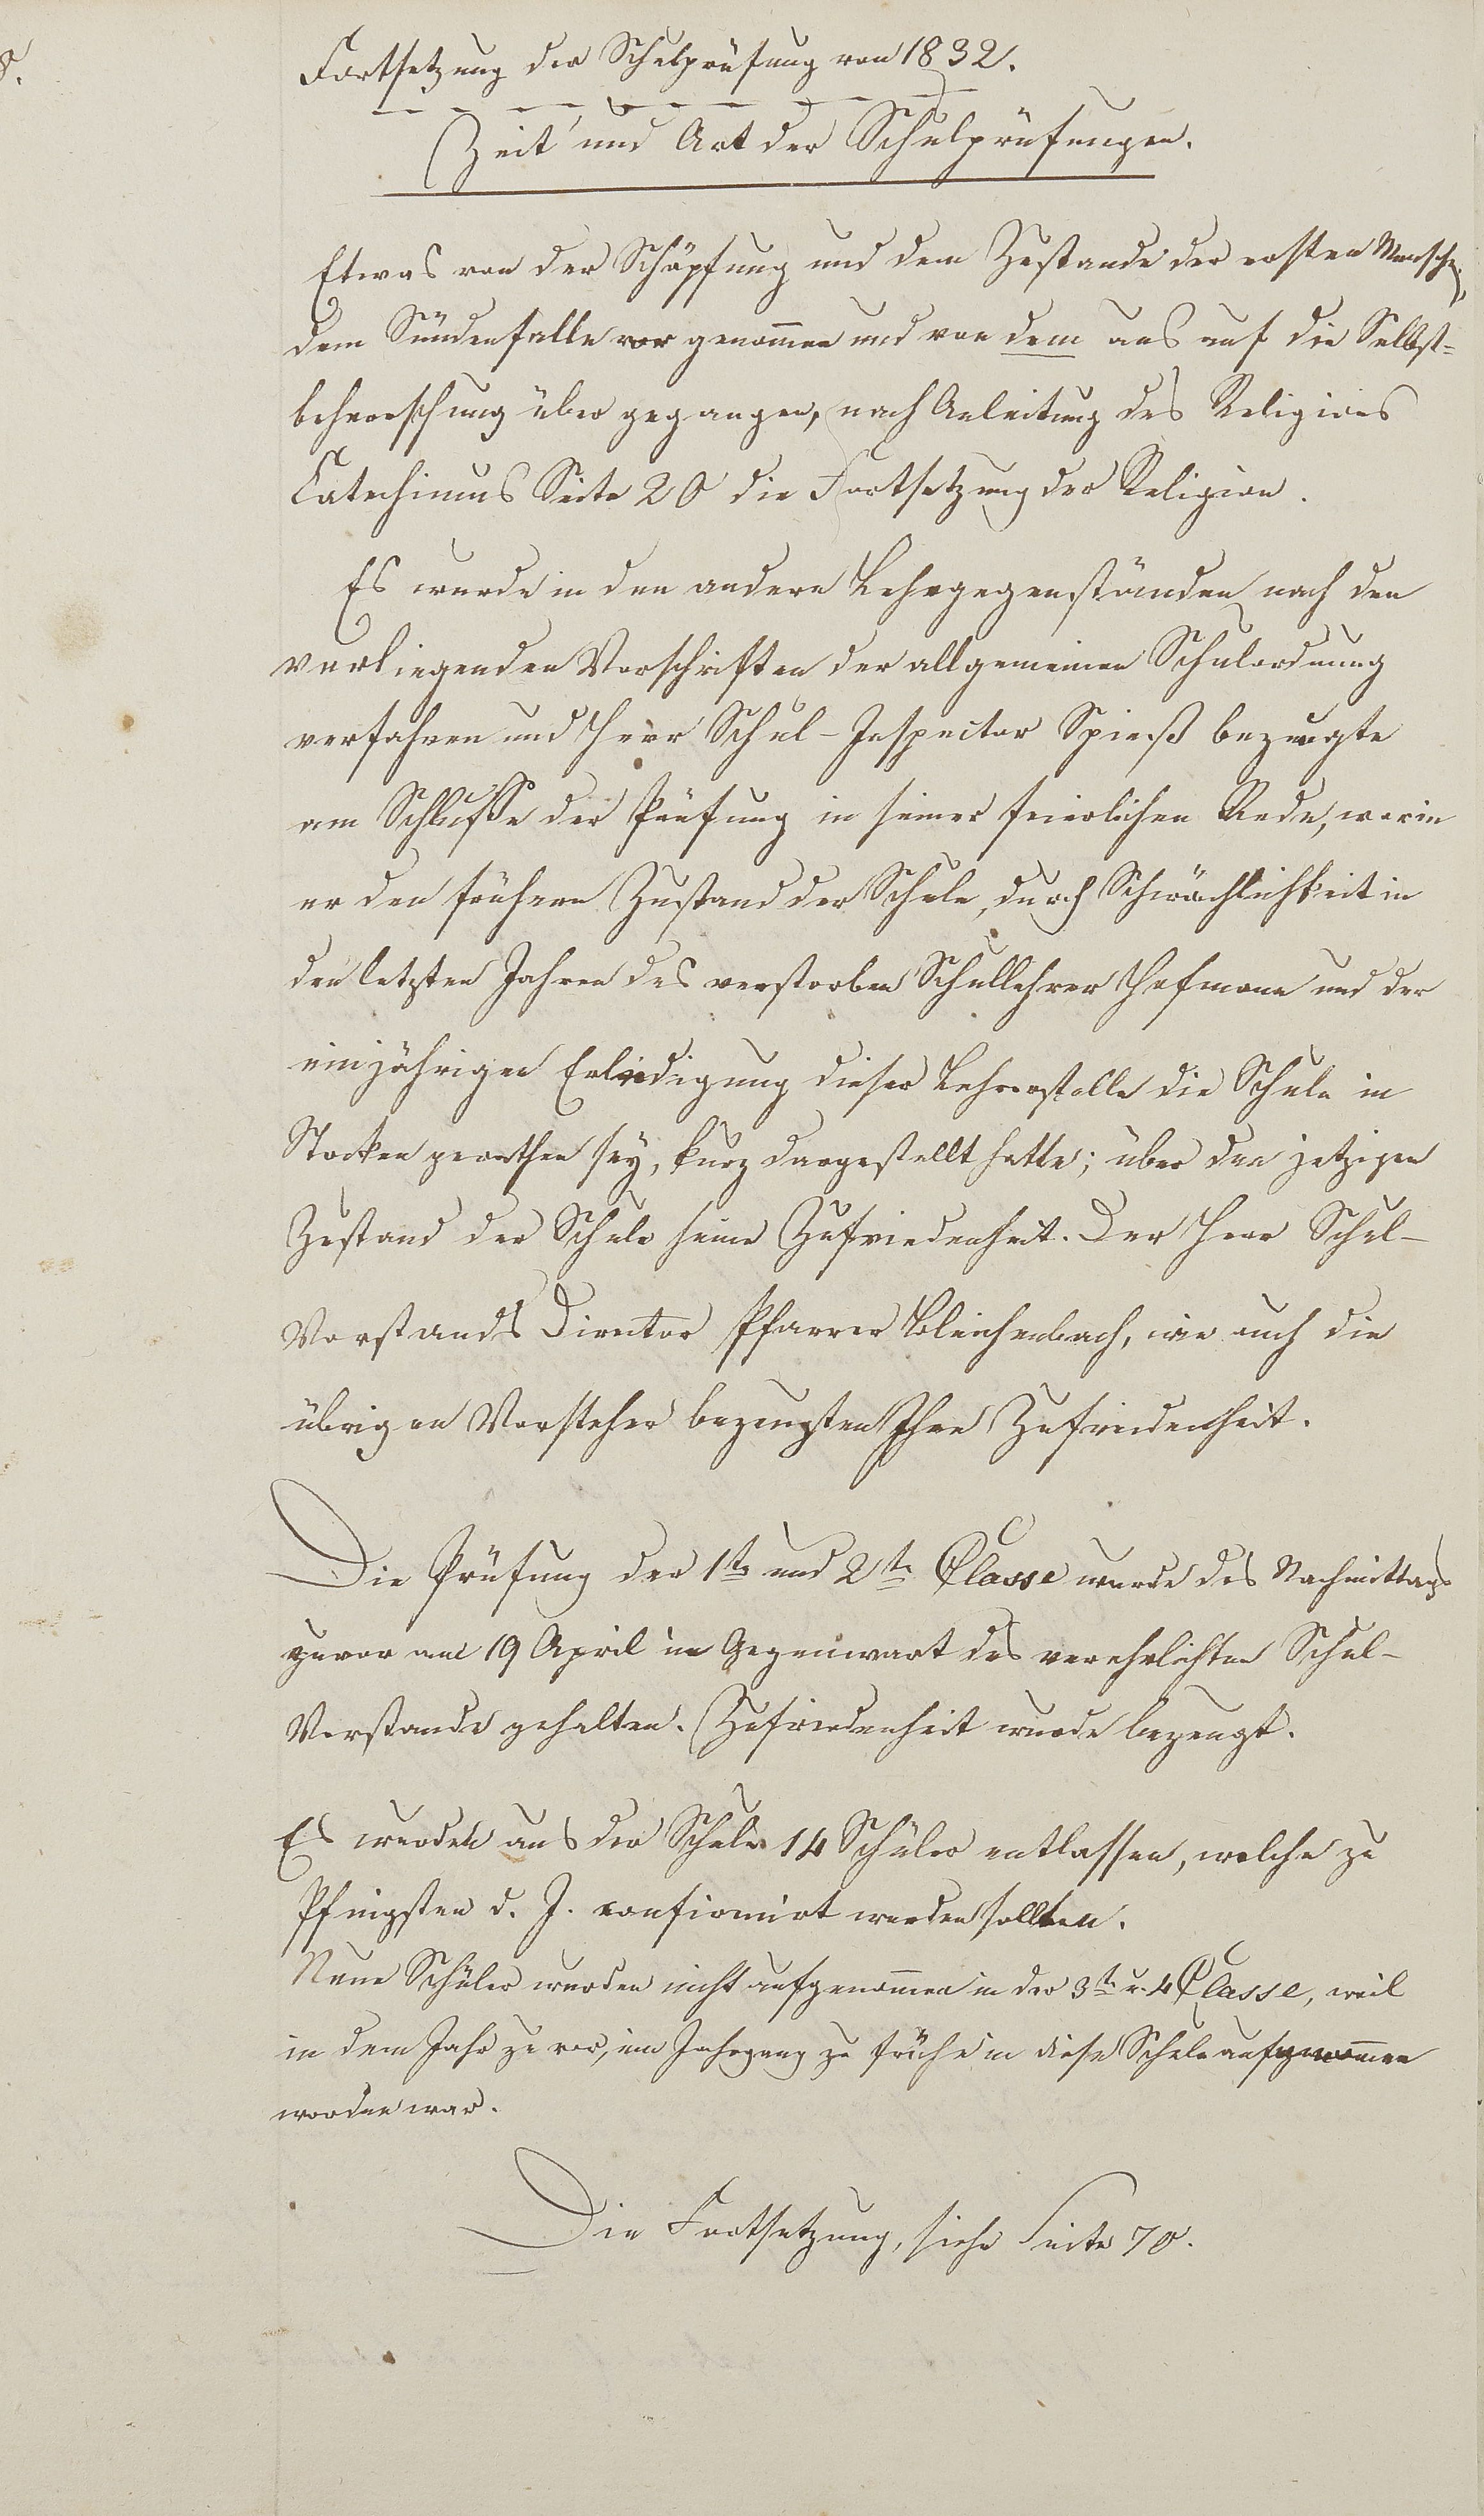 Fortsetzung der Schulprüfung von 1832.
Zeit und Art der Schulprüfungen.
Etwas von der Schöpfung und dem Zustande der ersten Menschen,
dem Sündenfalle vor genommen und von dem aus auf die Selbst-
beherrschung über gegangen, nach Anleitung des Religions
Catechimus Seite 20 die Fortsetzung der Religion.
Es wurde in den andern Lehrgegenständen nach den
vorliegenden Vorschriften der allgemeinen Schulordnung
verfahren und Herr Schul-Inspector Spieß bezeugte
am Schlusse der Prüfung in seiner feierlichen Rede, worin
er den frühern Zustand der Schule, durch Schwächlichkeit in
den letzten Jahren des verstorben Schullehrer Hofmann und der
einjährigen Erledigung dieser Lehrerstelle die Schule in
Stocken gerathen sey, kurz dargestellt hatte; über den jetzigen
Zustand der Schule seine Zufriedenheit. Der Herr Schul-
Vorstands Director Pfarrer Bleichenbach, wie auch die
übrigen Vorsteher bezeugten Ihre Zufriedenheit.
Die Prüfung der 1te und 2te Classe wurde des Nachmittags
zuvor am 19 April in Gegenwart des verehrlichten Schul-
Vorstande gehalten. Zufriedenheit wurde bezeugt.
Es wurden aus der Schule 14 Schüler entlassen, welche zu
Pfingsten d. J. confirmirt werden sollten.
Neue Schüler wurden nicht aufgenommen in der 3te u. 4 Classe, weil
in dem Jahr zu vor, ein Jahrgang zu frühe in diese Schule aufgenommen
worden war.
Die Fortsetzung, siehe Seite 70.